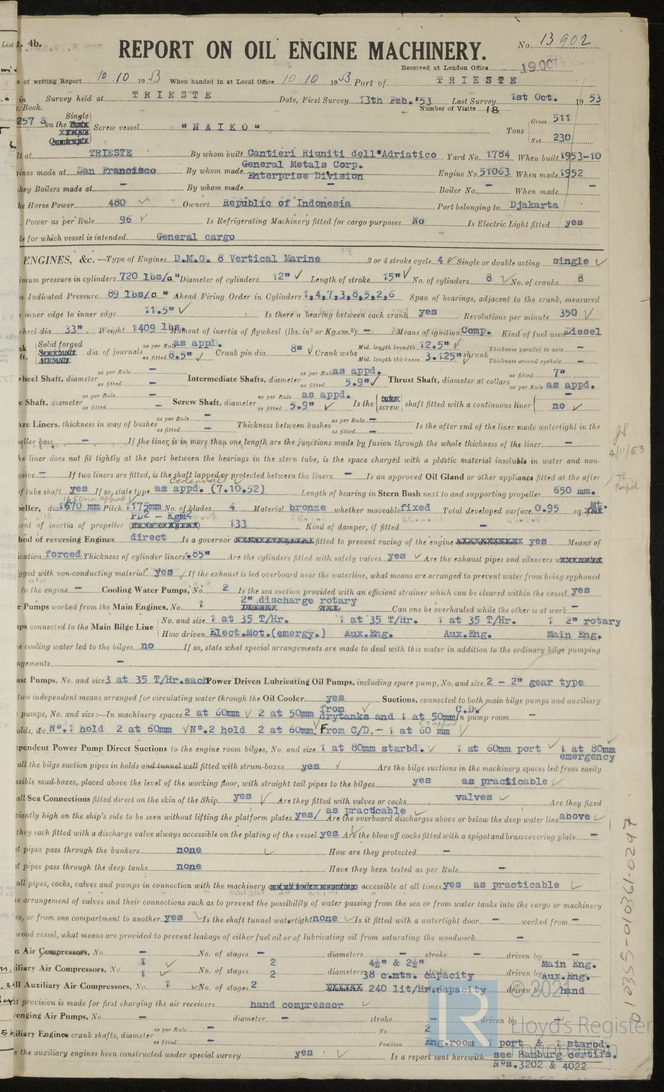 4b.
REPORT ON OIL ENGINE MACHINERY.
No. 13902
Received at London Office 19 OCT
of writing Report 10 10 1953 When handed in at Local Office 10 10 1953 Port of TRIESTE
Survey held at TRIESTE Date, First Survey 13th Feb. '53 Last Survey 1st Oct. 1953
Book. Number of Visits 18
257 S on the Single Screw vessel "NAIKO" Tons Gross 511 Net 230
at TRIESTE By whom built Cantieri Riuniti dell'Adriatico Yard No. 1784 When built 1953-10
made at San Francisco By whom made General Metals Corp. Enterprise Division Engine No. 51063 When made 1952
Boilers made at — By whom made — Boiler No. — When made —
Horse Power 480 Owners Republic of Indonesia Port belonging to Djakarta
Power as per Rule 96 Is Refrigerating Machinery fitted for cargo purposes No Is Electric Light fitted yes
for which vessel is intended General cargo
ENGINES, &c. —Type of Engines D.M.G. 8 Vertical Marine 2 or 4 stroke cycle 4 Single or double acting single
pressure in cylinders 720 lbs/ Diameter of cylinders 12" Length of stroke 15" No. of cylinders 8 No. of cranks 8
Indicated Pressure 89 lbs/ Ahead Firing Order in Cylinders 1,4,7,3,8,5,2,6 Span of bearings, adjacent to the crank, measured
inner edge to inner edge 11.5" Is there a bearing between each crank yes Revolutions per minute 350
dia. 33" Weight 1409 lbs. Moment of inertia of flywheel (lbs. in² or Kg.cm²) — Means of ignition Comp. Kind of fuel used Diesel
Solid forged dia. of journals as per Rule as appd. as fitted 8.5" Crank pin dia. 8" Crank webs Mid. length breadth 12.5" Mid. length thickness 3.125" shrunk Thickness parallel to axis — Thickness around eyehole —
Shaft, diameter as per Rule — as fitted — Intermediate Shafts, diameter as per Rule as appd. as fitted 5.9" Thrust Shaft, diameter at collars as fitted 7" as per Rule as appd.
Shaft, diameter as per Rule — as fitted — Screw Shaft, diameter as per Rule as appd. as fitted 5.9" Is the screw shaft fitted with a continuous liner no
Liners, thickness in way of bushes as per Rule — as fitted — Thickness between bushes as per Rule — as fitted — Is the after end of the liner made watertight in the
boss — If the liner is in more than one length are the junctions made by fusion through the whole thickness of the liner —
liner does not fit tightly at the part between the bearings in the stern tube, is the space charged with a plastic material insoluble in water and non-
— If two liners are fitted, is the shaft lapped or protected between the liners — Is an approved Oil Gland or other appliance fitted at the after
of tube shaft yes If so, state type as appd. (7.10.52) Length of bearing in Stern Bush next to and supporting propeller 650 mm.
dia 1670 mm Pitch 1775mm No. of blades 4 Material bronze whether movable fixed Total developed surface 0.95 sq. Mt.
of inertia of propeller PD2 - Kgm2 133 Kind of damper, if fitted —
of reversing Engines direct Is a governor fitted to prevent racing of the engine yes Means of
forced Thickness of cylinder liners .85" Are the cylinders fitted with safety valves yes Are the exhaust pipes and silencers
with non-conducting material yes If the exhaust is led overboard near the waterline, what means are arranged to prevent water from being syphoned
to the engine — Cooling Water Pumps, No. 2 Is the sea suction provided with an efficient strainer which can be cleared within the vessel yes
Pumps worked from the Main Engines, No. 1 2" discharge rotary Can one be overhauled while the other is at work —
connected to the Main Bilge Line No. and size 1 at 35 T/Hr. 1 at 35 T/Hr. 1 at 35 T/Hr. 1 2" rotary
How driven Elect.Mot.(emergy.) Aux.Eng. Aux.Eng. Main Eng.
cooling water led to the bilges no If so, state what special arrangements are made to deal with this water in addition to the ordinary bilge pumping
—
Pumps, No. and size 3 at 35 T/Hr.each Power Driven Lubricating Oil Pumps, including spare pump, No. and size 2 - 2" gear type
two independent means arranged for circulating water through the Oil Cooler yes Suctions, connected to both main bilge pumps and auxiliary
pumps, No. and size:—In machinery spaces 2 at 60mm 2 at 50mm from drytanks and 1 at 50mm C.D. In pump room —
&c. No.1 hold 2 at 60mm No.2 hold 2 at 60mm. From C/D. - 1 at 60 mm
Power Pump Direct Suctions to the engine room bilges, No. and size 1 at 80mm starbd. 1 at 60mm port 1 at 80mm emergency
all the bilge suction pipes in holds and tunnel well fitted with strum-boxes yes Are the bilge suctions in the machinery spaces led from easily
mud-boxes, placed above the level of the working floor, with straight tail pipes to the bilges yes as practicable
all Sea Connections fitted direct on the skin of the Ship yes Are they fitted with valves or cocks valves Are they fixed
high on the ship's side to be seen without lifting the platform plates yes/ as practicable Are the overboard discharges above or below the deep water line above
they each fitted with a discharge valve always accessible on the plating of the vessel yes Are the blow off cocks fitted with a spigot and brass covering plate —
pipes pass through the bunkers none How are they protected —
pipes pass through the deep tanks none Have they been tested as per Rule —
all pipes, cocks, valves and pumps in connection with the machinery accessible at all times yes as practicable
arrangement of valves and their connections such as to prevent the possibility of water passing from the sea or from water tanks into the cargo or machinery
or from one compartment to another yes Is the shaft tunnel watertight none Is it fitted with a watertight door — worked from —
wood vessel, what means are provided to prevent leakage of either fuel oil or of lubricating oil from saturating the woodwork —
Air Compressors, No. — No. of stages — diameters — stroke — driven by —
Auxiliary Air Compressors, No. 1 No. of stages 2 diameters 4½" & 2½" 38 c.mts. capacity driven by Main Eng. Aux.Eng.
Auxiliary Air Compressors, No. 1 No. of stages 2 240 lit/Hr.capacity driven by hand
provision is made for first charging the air receivers hand compressor
Air Pumps, No. — diameter — stroke — driven by —
Engines crank shafts, diameter as per Rule — as fitted — No. 2 Position Eng.room 1 port & 1 starbd.
the auxiliary engines been constructed under special survey yes Is a report sent herewith see Hamburg certifs. Nos.3202 & 4022
4/11/53
P 10355-010361-0247
© 2021
LR
Lloyd's Register